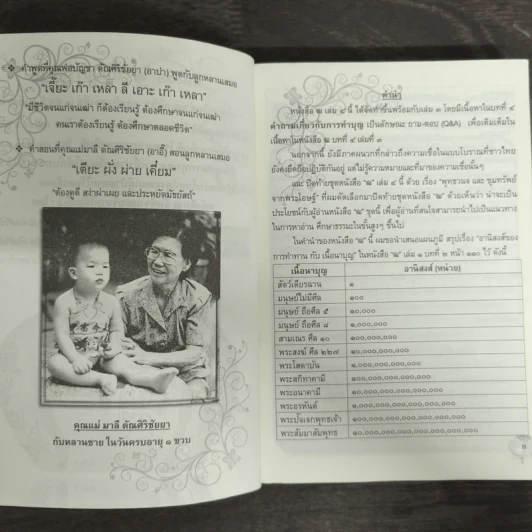 คำพูดที่คุณพ่อบัญชา ตัณศิริชัยยา (อาปา) พูดกับลูกหลานเสมอ
"เจี๊ยะ เก๊า เหล่า ลี่ เอาะ เก๊า เหลา"
"มีชีวิตจนแก่จนเฒ่า ก็ต้องเรียนรู้ ต้องศึกษาจนแก่จนเฒ่า
คนเราต้องเรียนรู้ ต้องศึกษาตลอดชีวิต"
คำสอนที่คุณแม่มาลี ตัณศิริชัยยา (อาอี๊) สอนลูกหลานเสมอ
"เตียะ ผั่ง ผ่าย เคี่ยม"
"ต้องดูดี สง่าผ่าเผย และประหยัดมัธยัสถ์"
คุณแม่ มาลี ตัณศิริชัยยา
กับหลานชาย ในวันครบอายุ ๑ ขวบ
คำนำ
หนังสือ ๒ เล่ม ๔ นี้ ได้จัดทำขึ้นพร้อมกับเล่ม ๓ โดยมีเนื้อหาในบทที่ ๔
คำถามเกี่ยวกับการทำบุญ เป็นลักษณะ ถาม-ตอบ (Q&A) เพื่อเติมเติมใน
เนื้อหาในหนังสือ ๒ บทที่ ๔ เล่มที่ ๓
นอกจากนี้ ยังมีภาคผนวกที่กล่าวถึงความเชื่อในแบบโบราณที่ชาวไทย
ยังคงยึดถือปฏิบัติกันอยู่ แต่ไม่รู้ความหมายและที่มาของความเชื่อนั้นๆ
และ ปิดท้ายชุดหนังสือ "๒" เล่ม ๔ นี้ ด้วย เรื่อง "พุทธวจน และ ขุมทรัพย์
จากพระโอษฐ์" ที่ผมคัดเลือกมาปิดท้ายชุดหนังสือ "๒" ด้วยเห็นว่า น่าจะเป็น
ประโยชน์กับผู้อ่านหนังสือ "๒" ชุดนี้ เพื่อผู้อ่านที่สนใจสามารถนำไปเป็นแนวทาง
ในการหาอ่าน ศึกษาธรรมะในขั้นสูงๆ ขึ้นไป
ในคำนำของหนังสือ "๒" นี้ ผมขอนำเสนอแผนภูมิ สรุปเรื่อง "อานิสงส์ของ
การทำทาน กับ เนื้อนาบุญ" ในหนังสือ "๒" เล่ม ๑ บทที่ ๒ หน้า ๑๑๐ ไว้ ดังนี้
เนื้อนาบุญ อานิสงส์ (หน่วย)
สัตว์เดียรฉาน ๑
มนุษย์ไม่มีศีล ๑๐๐
มนุษย์ ถือศีล ๕ ๑๐,๐๐๐
มนุษย์ ถือศีล ๘ ๑,๐๐๐,๐๐๐
สามเณร ศีล ๑๐ ๑๐๐,๐๐๐,๐๐๐
พระสงฆ์ ศีล ๒๒๗ ๑๐,๐๐๐,๐๐๐,๐๐๐
พระโสดาบัน ๑,๐๐๐,๐๐๐,๐๐๐,๐๐๐
พระสกิทาคามี ๑๐๐,๐๐๐,๐๐๐,๐๐๐,๐๐๐
พระอนาคามี ๑๐,๐๐๐,๐๐๐,๐๐๐,๐๐๐,๐๐๐
พระอรหันต์ ๑,๐๐๐,๐๐๐,๐๐๐,๐๐๐,๐๐๐,๐๐๐
พระปัจเจกพุทธเจ้า ๑๐๐,๐๐๐,๐๐๐,๐๐๐,๐๐๐,๐๐๐,๐๐๐
พระสัมมาสัมพุทธ ๑๐,๐๐๐,๐๐๐,๐๐๐,๐๐๐,๐๐๐,๐๐๐,๐๐๐